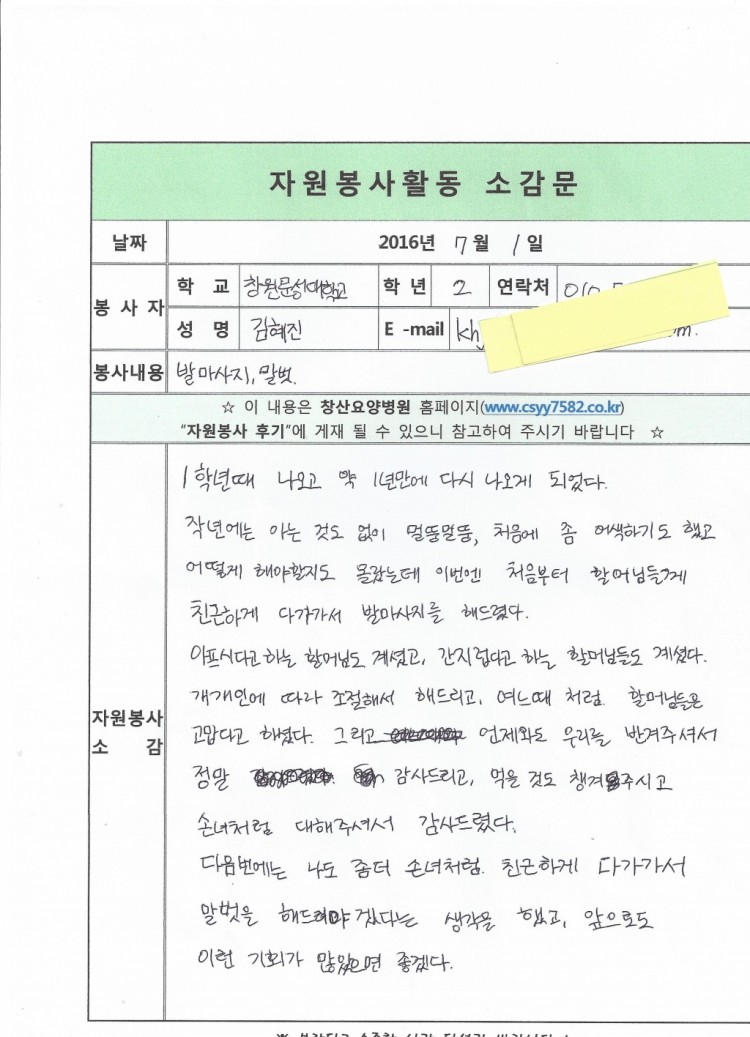 자원봉사활동 소감문
날짜 2016년 7월 1일
봉사자 학 교 창원문성대학교 학 년 2 연락처 010
성 명 김혜진 E -mail kh
봉사내용 발마사지, 말벗.
☆ 이 내용은 창산요양병원 홈페이지(www.csyy7582.co.kr)
"자원봉사 후기"에 게재 될 수 있으니 참고하여 주시기 바랍니다 ☆
자원봉사 소 감
1학년때 나오고 약 1년만에 다시 나오게 되었다.
작년에는 아는 것도 없이 멀뚱멀뚱, 처음에 좀 어색하기도 했고
어떻게 해야할지도 몰랐는데 이번엔 처음부터 할머님들께
친근하게 다가가서 발마사지를 해드렸다.
아프시다고 하는 할머님도 계셨고, 간지럽다고 하는 할머님들도 계셨다.
개개인에 따라 조절해서 해드리고, 여느때 처럼 할머님들은
고맙다고 하셨다. 그리고 언제와도 우리를 반겨주셔서
정말 감사드리고, 먹을 것도 챙겨주시고
손녀처럼 대해주셔서 감사드렸다.
다음번에는 나도 좀더 손녀처럼 친근하게 다가가서
말벗을 해드려야 겠다는 생각을 했고, 앞으로도
이런 기회가 많았으면 좋겠다.